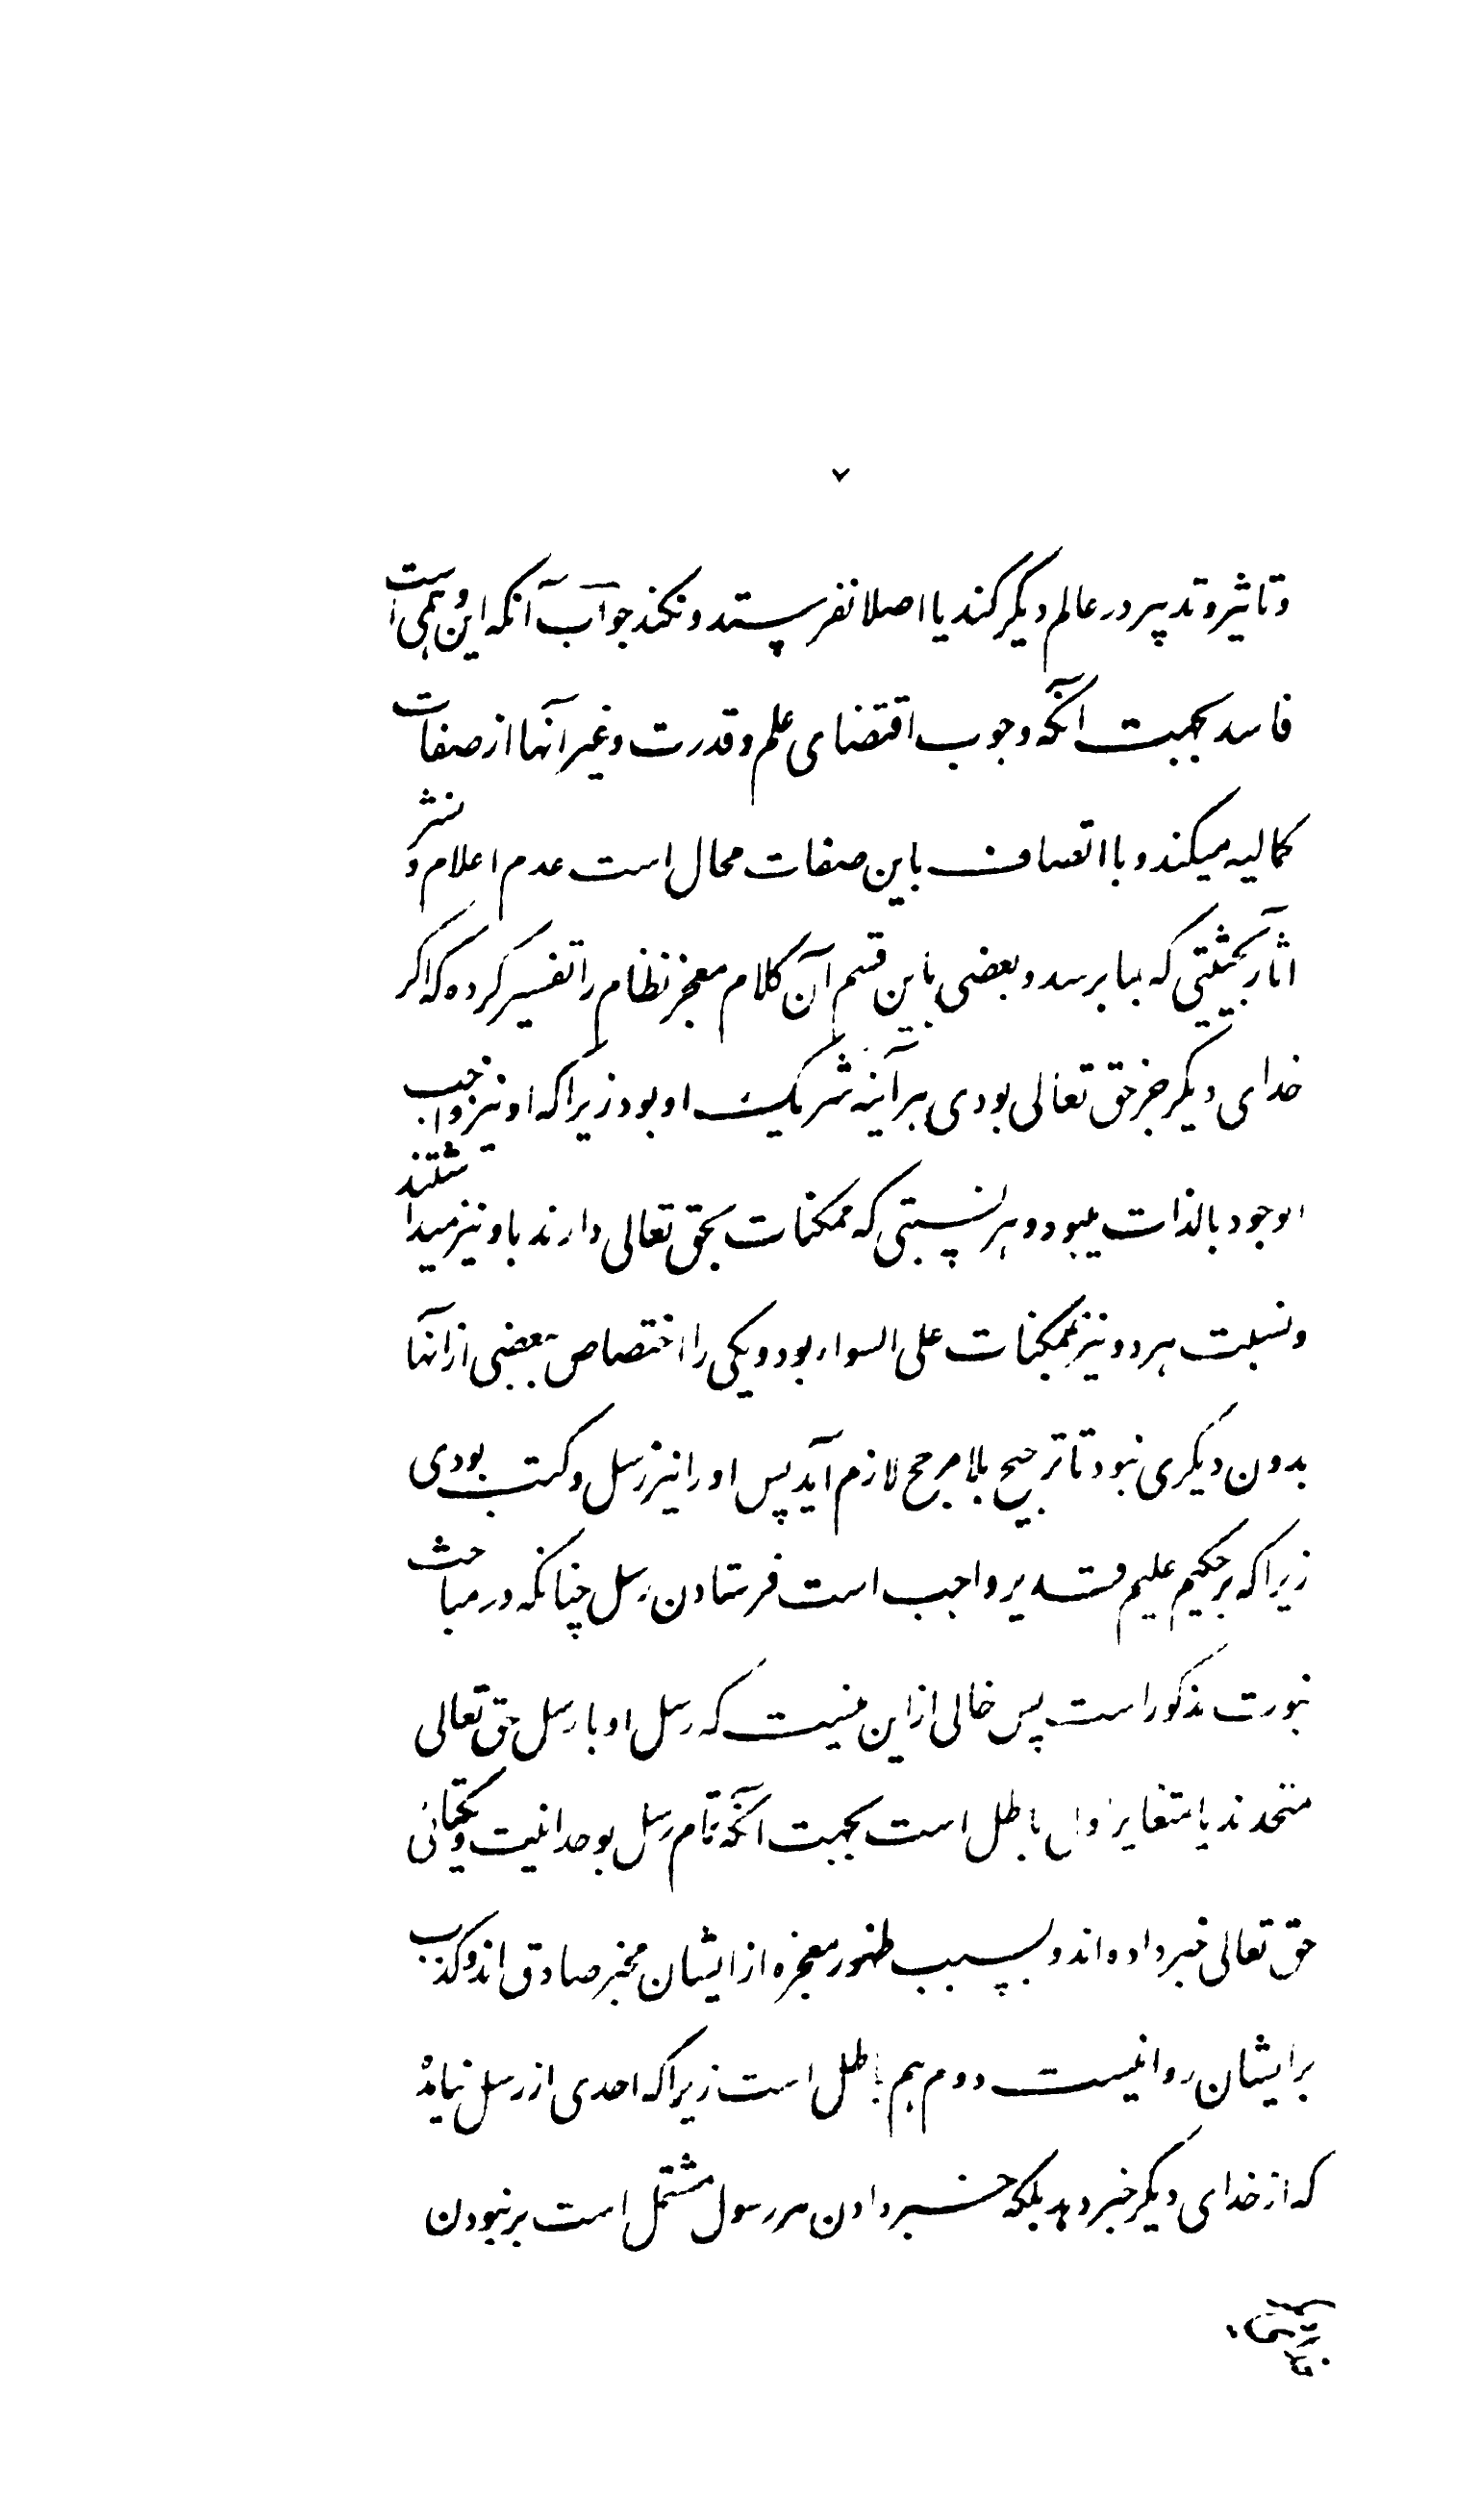 ۷
و تاثیر و تدبیر در عالم دیگر کند یا اصلا نفرستد و نکند جواب آنکه این وهمی است
فاسد بجهت آنکه وجوب اقتضای علم و قدرت و غیر آنها از صفات
کمالیه میکند و با اتصاف باین صفات محال است عدم اعلام و نشر
آثار بحیثیتی که بما برسد و بعضی باین قسم آن کلام معجز نظام را تفسیر کرده که اگر
خدای دیگر جز حق تعالی بودی هر آینه شریک او بود زیرا که او نیز واجب
الوجود بالذات میبود و هر نسبتی که ممکنات بحق تعالی دارند باو نیز میداشتند
و نسبت هر دو نیز بممکنات علی السواء بود و یکی را اختصاص ببعضی از آنها
بدون دیگری نبود تا ترجیح بلا مرجح لازم آید پس او را نیز رسل و کتب بودی
زیرا که بر حکیم علیم قدیر واجب است فرستادن رسل چنانکه در مباحث
نبوت مذکور است پس خالی از این نیست که رسل او با رسل حق تعالی
متحدند یا متغایر اول باطل است بجهت آنکه تمام رسل بوحدانیت و یکتائی
حق تعالی خبر داده‌اند و بسبب ظهور معجزه از ایشان مخبر صادق‌اند و کذب
بر ایشان روا نیست دوم هم باطل است زیرا که احدی از رسل نیامد
که از خدای دیگر خبر دهد بلکه خبر دادن هر رسول مشتمل است بر نبودن